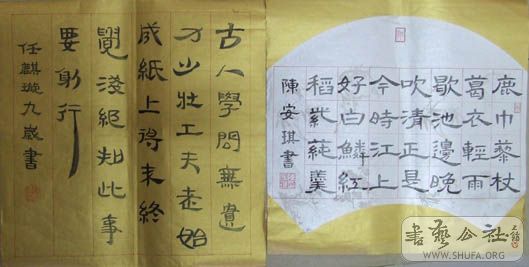 古人學問無遺
力少壯工夫老始
成紙上得來終
覺淺絕知此事
要躬行
任麒璇九歲書
鹿巾藜杖
葛衣輕雨
歇池邊晚
吹清正是
今時江上
好白鱗紅
稻紫蓴羹
陳安琪書
書藝公社
WWW.SHUFA.ORG